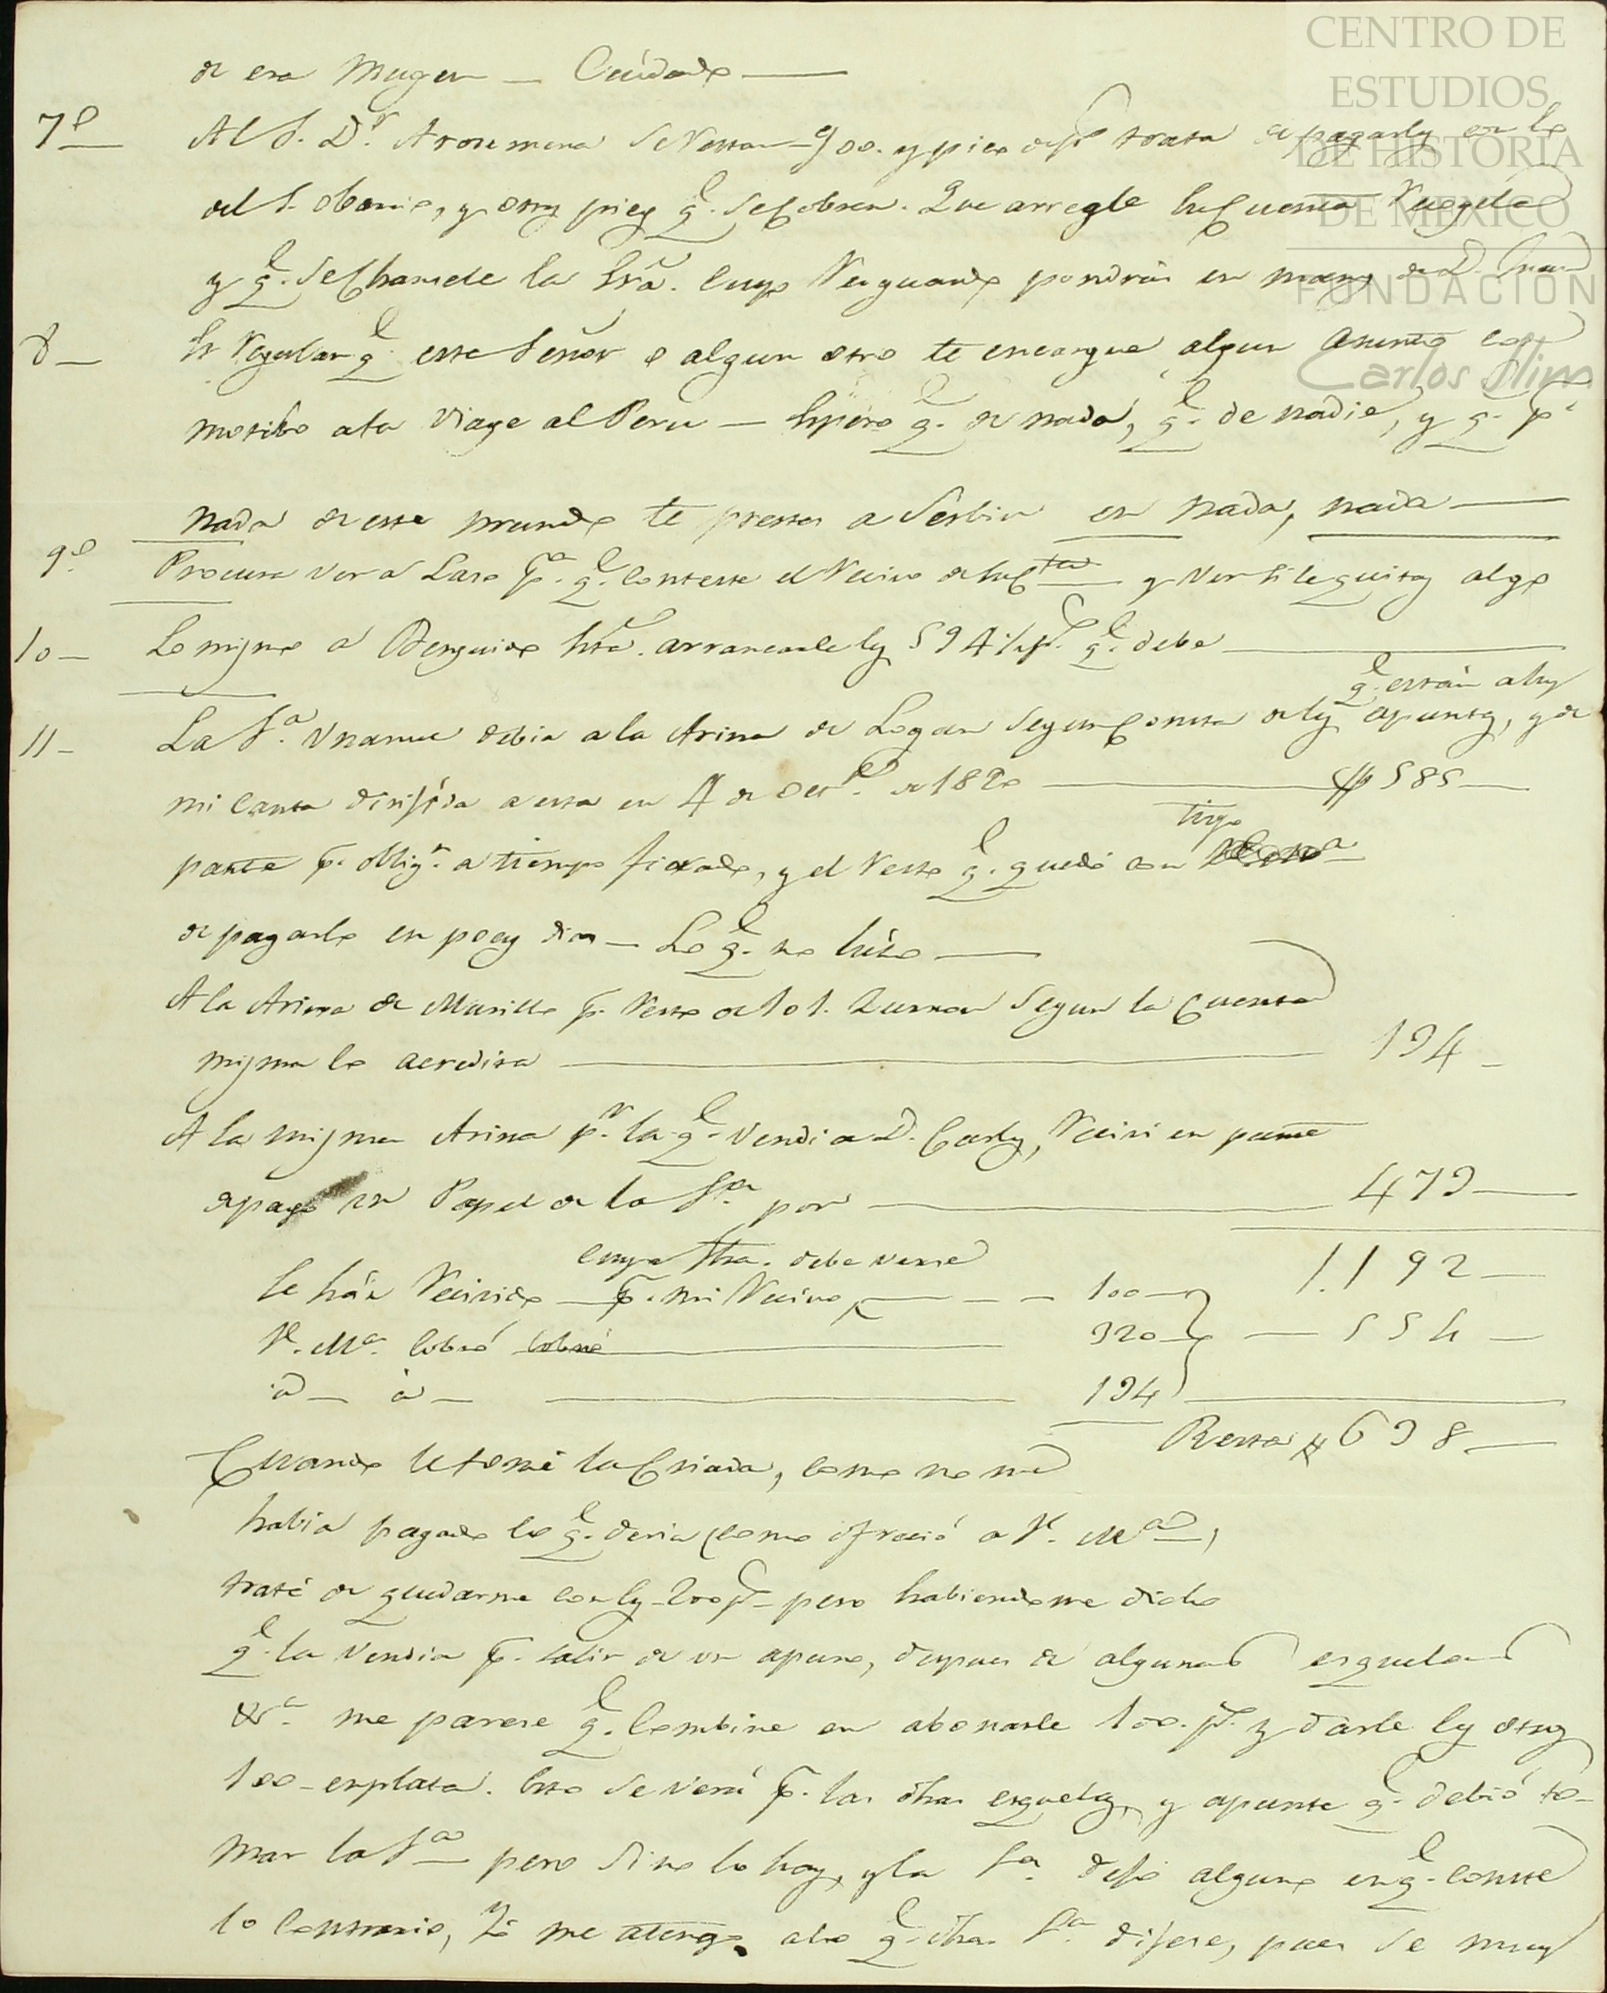 CENTRO DE
ESTUDIOS
DE HISTORIA
DE MEXICO
FUNDACIÓN
Carlos Slim
de esa Muger — Cuidado —
7º— Al S. D.r Arosemena se restan 900. y pico de p.s trata de pagarles en lo
del S. Obario, y otros picos q.e se cobren. Que arregle su Cuenta
y q.e se chancele la Ess.a cuyo resguardo pondrás en manos de D. Juan
8— Es regular q.e este Señor o algun otro te encargue algun asunto con
motibo a tu viage al Peru — Espero q.e de nada, q.e de nadie, y q.e p.r
nada de este mundo te prestes a serbir en nada, nada —
9º— Procura ver a Laso p.a q.e conteste el recivo de su C.ta y ver si le quitas algo
10— Lo mismo a Berguido h.ta arrancarle los 594 p.s q.e debe —
q.e están ahy
11— La S.a Unanue debia a la Arina de Logan segun consta de los apuntes, y de
mi Carta dirijida a esta en 4 de Oct.e de 1820 — $ 585 —
tirgo
parte p.r oblig.n a tiempo ficxado, y el resto q.e quedó con
de pagarlo en pocos dias — Lo q.e no hizo —
A la Arina de Murillo p.r resto de 101. Zurron segun la Cuenta
misma lo acredita — 134 —
A la misma Arina p.r la q.e vendi a D. Carlos, recivi en parte
de pago un Papel de la S.ra por — 473 —
1.192 —
cuya fha. debe verse
Se hán recivido — p.r mi recivo — 100 —
F. M.a cobró cobró — 320 — 554 —
id — id — 134
Resta $ 638 —
Quando le tomé la Criada, como no me
habia pagado lo q.e devia como ofreció a F. M.a,
traté de quedarme con los 200 p.s pero habiendome dicho
q.e la vendia p.r salir de un apuro, despues de algunas esquelas
&.a me parece q.e combine en abonarle 100. p.s y darle los otros
100 en plata. Esto se verá p.r las dhas esquelas, y apunte q.e debió to-
mar la S.a pero si no lo hay, y la S.a dejó alguno en q.e conste
lo contrario, Yo me atengo a lo q.e dha S.a dijere, pues se muy